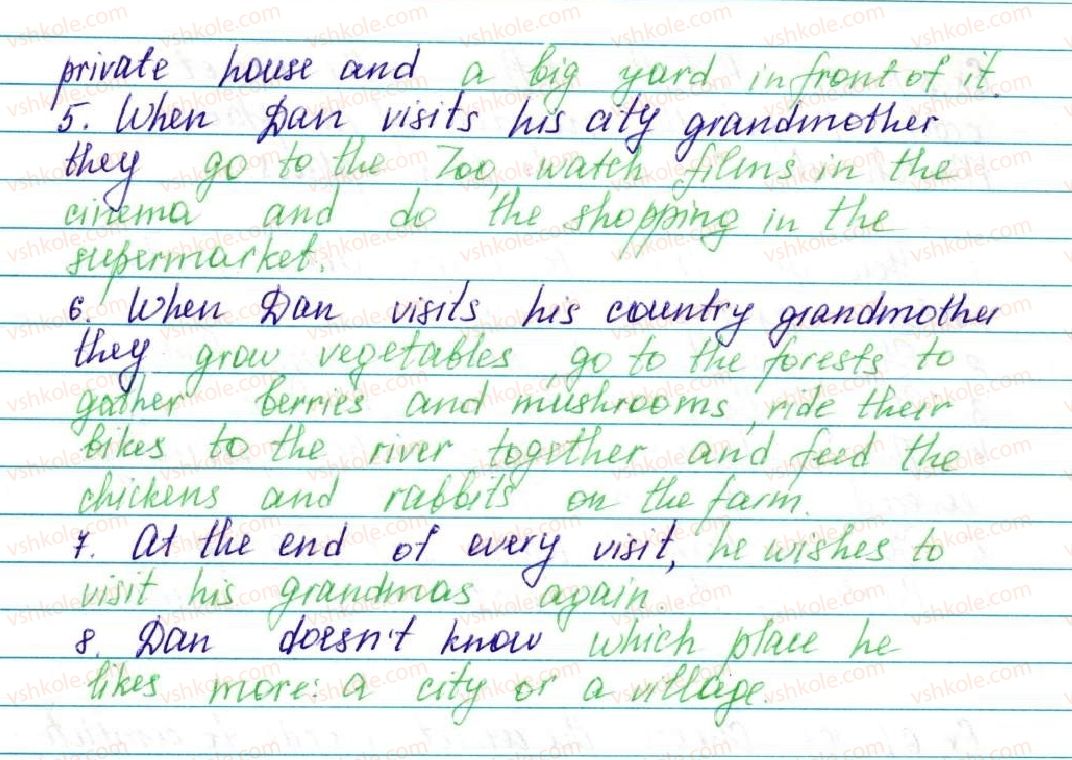 private house and a big yard in front of it.
5. When Dan visits his city grandmother
they go to the Zoo, watch films in the
cinema and do the shopping in the
supermarket.
6. When Dan visits his country grandmother
they grow vegetables, go to the forests to
gather berries and mushrooms, ride their
bikes to the river together and feed the
chickens and rabbits on the farm.
7. At the end of every visit, he wishes to
visit his grandmas again.
8. Dan doesn't know which place he
likes more: a city or a village.